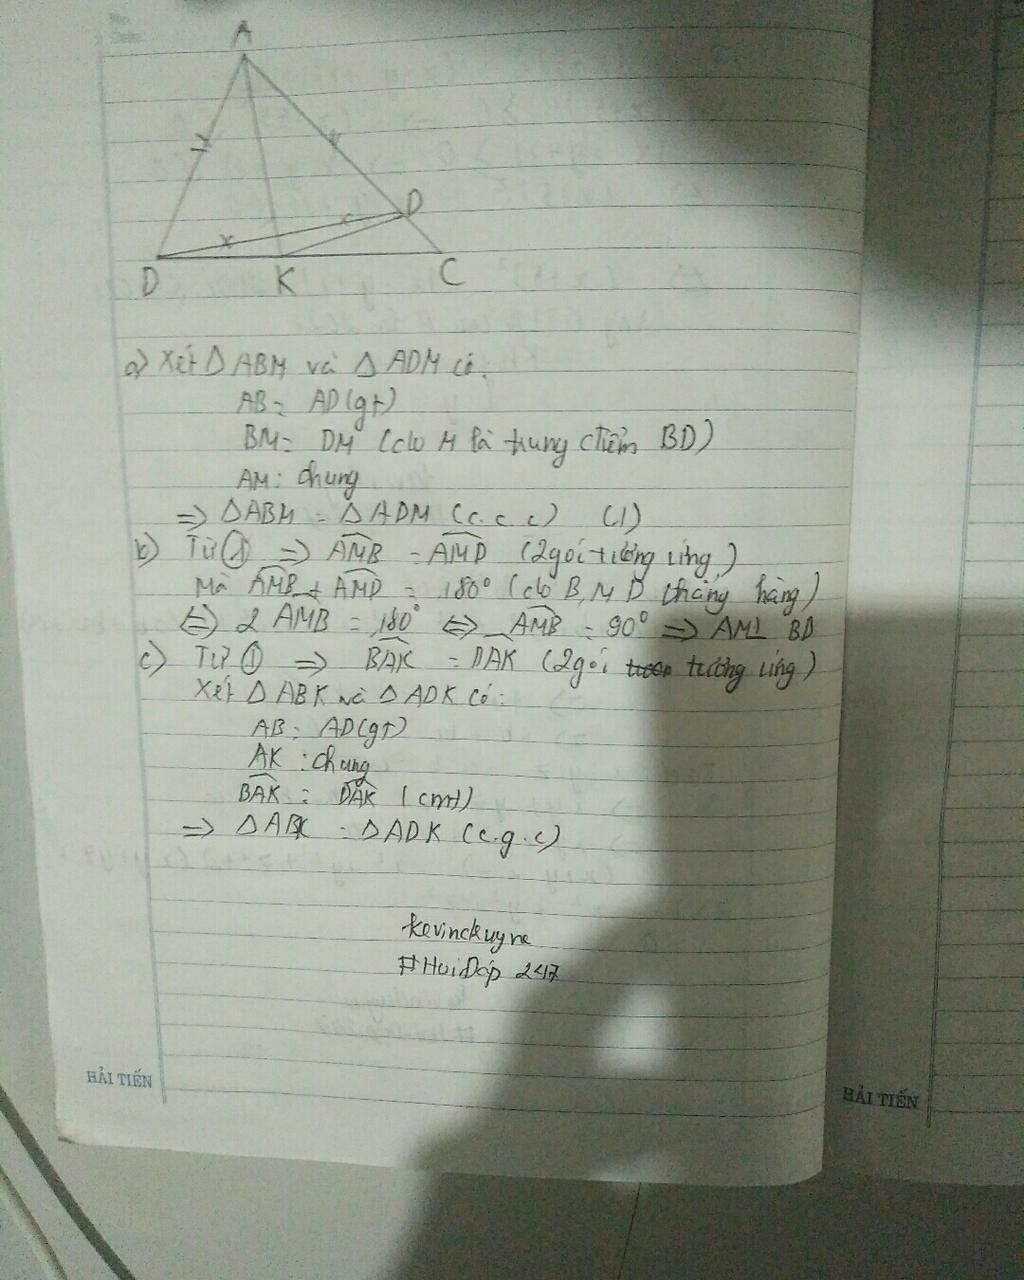 A
D
D K C
a) Xét Δ ABM và Δ ADM có:
AB = AD (gt)
BM = DM (do M là trung điểm BD)
AM: chung
=> ΔABM = ΔADM (c.c.c) (1)
b) Từ (1) => AMB = AMD (2 gói tương ứng)
Mà AMB + AMD = 180° (do B, M D thẳng hàng)
<=> 2 AMB = 180° <=> AMB = 90° => AM⊥ BD
c) Từ (1) => BAK = DAK (2 gói tương ứng)
Xét Δ ABK và Δ ADK có:
AB = AD (gt)
AK : chung
BAK = DAK (cmt)
=> Δ ABK = Δ ADK (c.g.c)
kevinduyne
#HoiDap 247
HẢI TIẾN
HẢI TIẾN